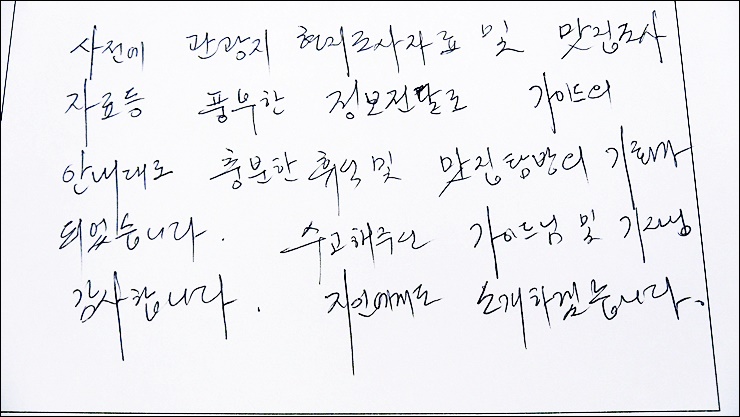 사전에 관광지 현지조사자료 및 맛집조사
자료등 풍부한 정보전달로 가이드의
안내대로 충분한 휴식 및 맛집탐방의 기회가
되었습니다. 수고해주신 가이드님 및 기사님
감사합니다. 지인에게도 소개하겠습니다.